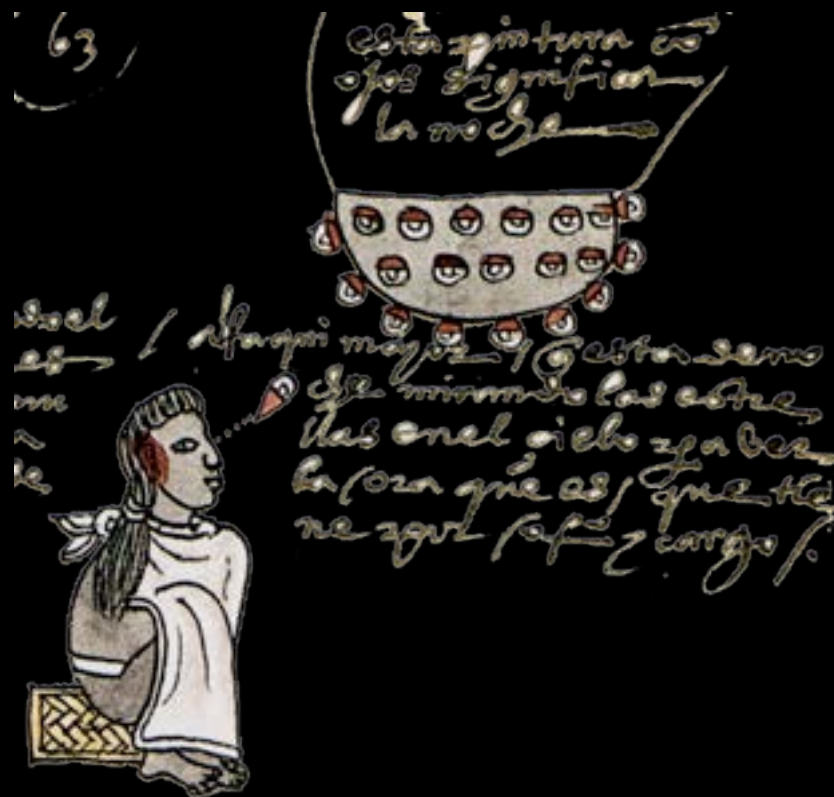 63
esta pintura cō
ojos significa
la noche
alfaqui mayor q̄ esta de no
che mirando las estre
llas en el cielo y a ver
la ora que es / que tie
ne por ofi° y cargo /.
es